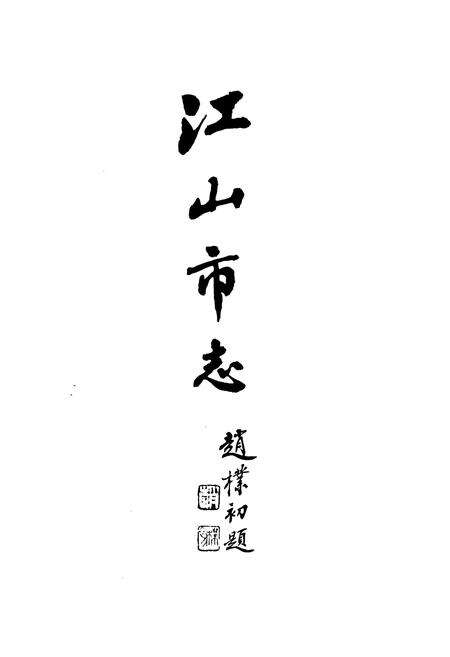 江山市志
趙樸初題